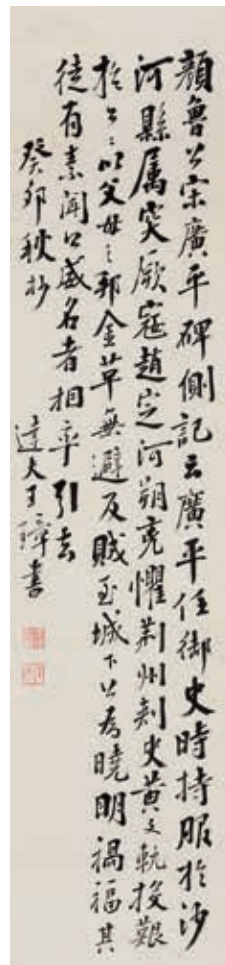 顏魯公宋廣平碑側記云廣平任御史時持服於沙
河縣属突厥寇趙定河朔兇懼荊州刺史黃文軌投艱
於公公以父母之邦金革無避及賊至城下公為曉明禍福其
徒有素聞公盛名者相率引去
癸卯秋抄
達夫王璋書